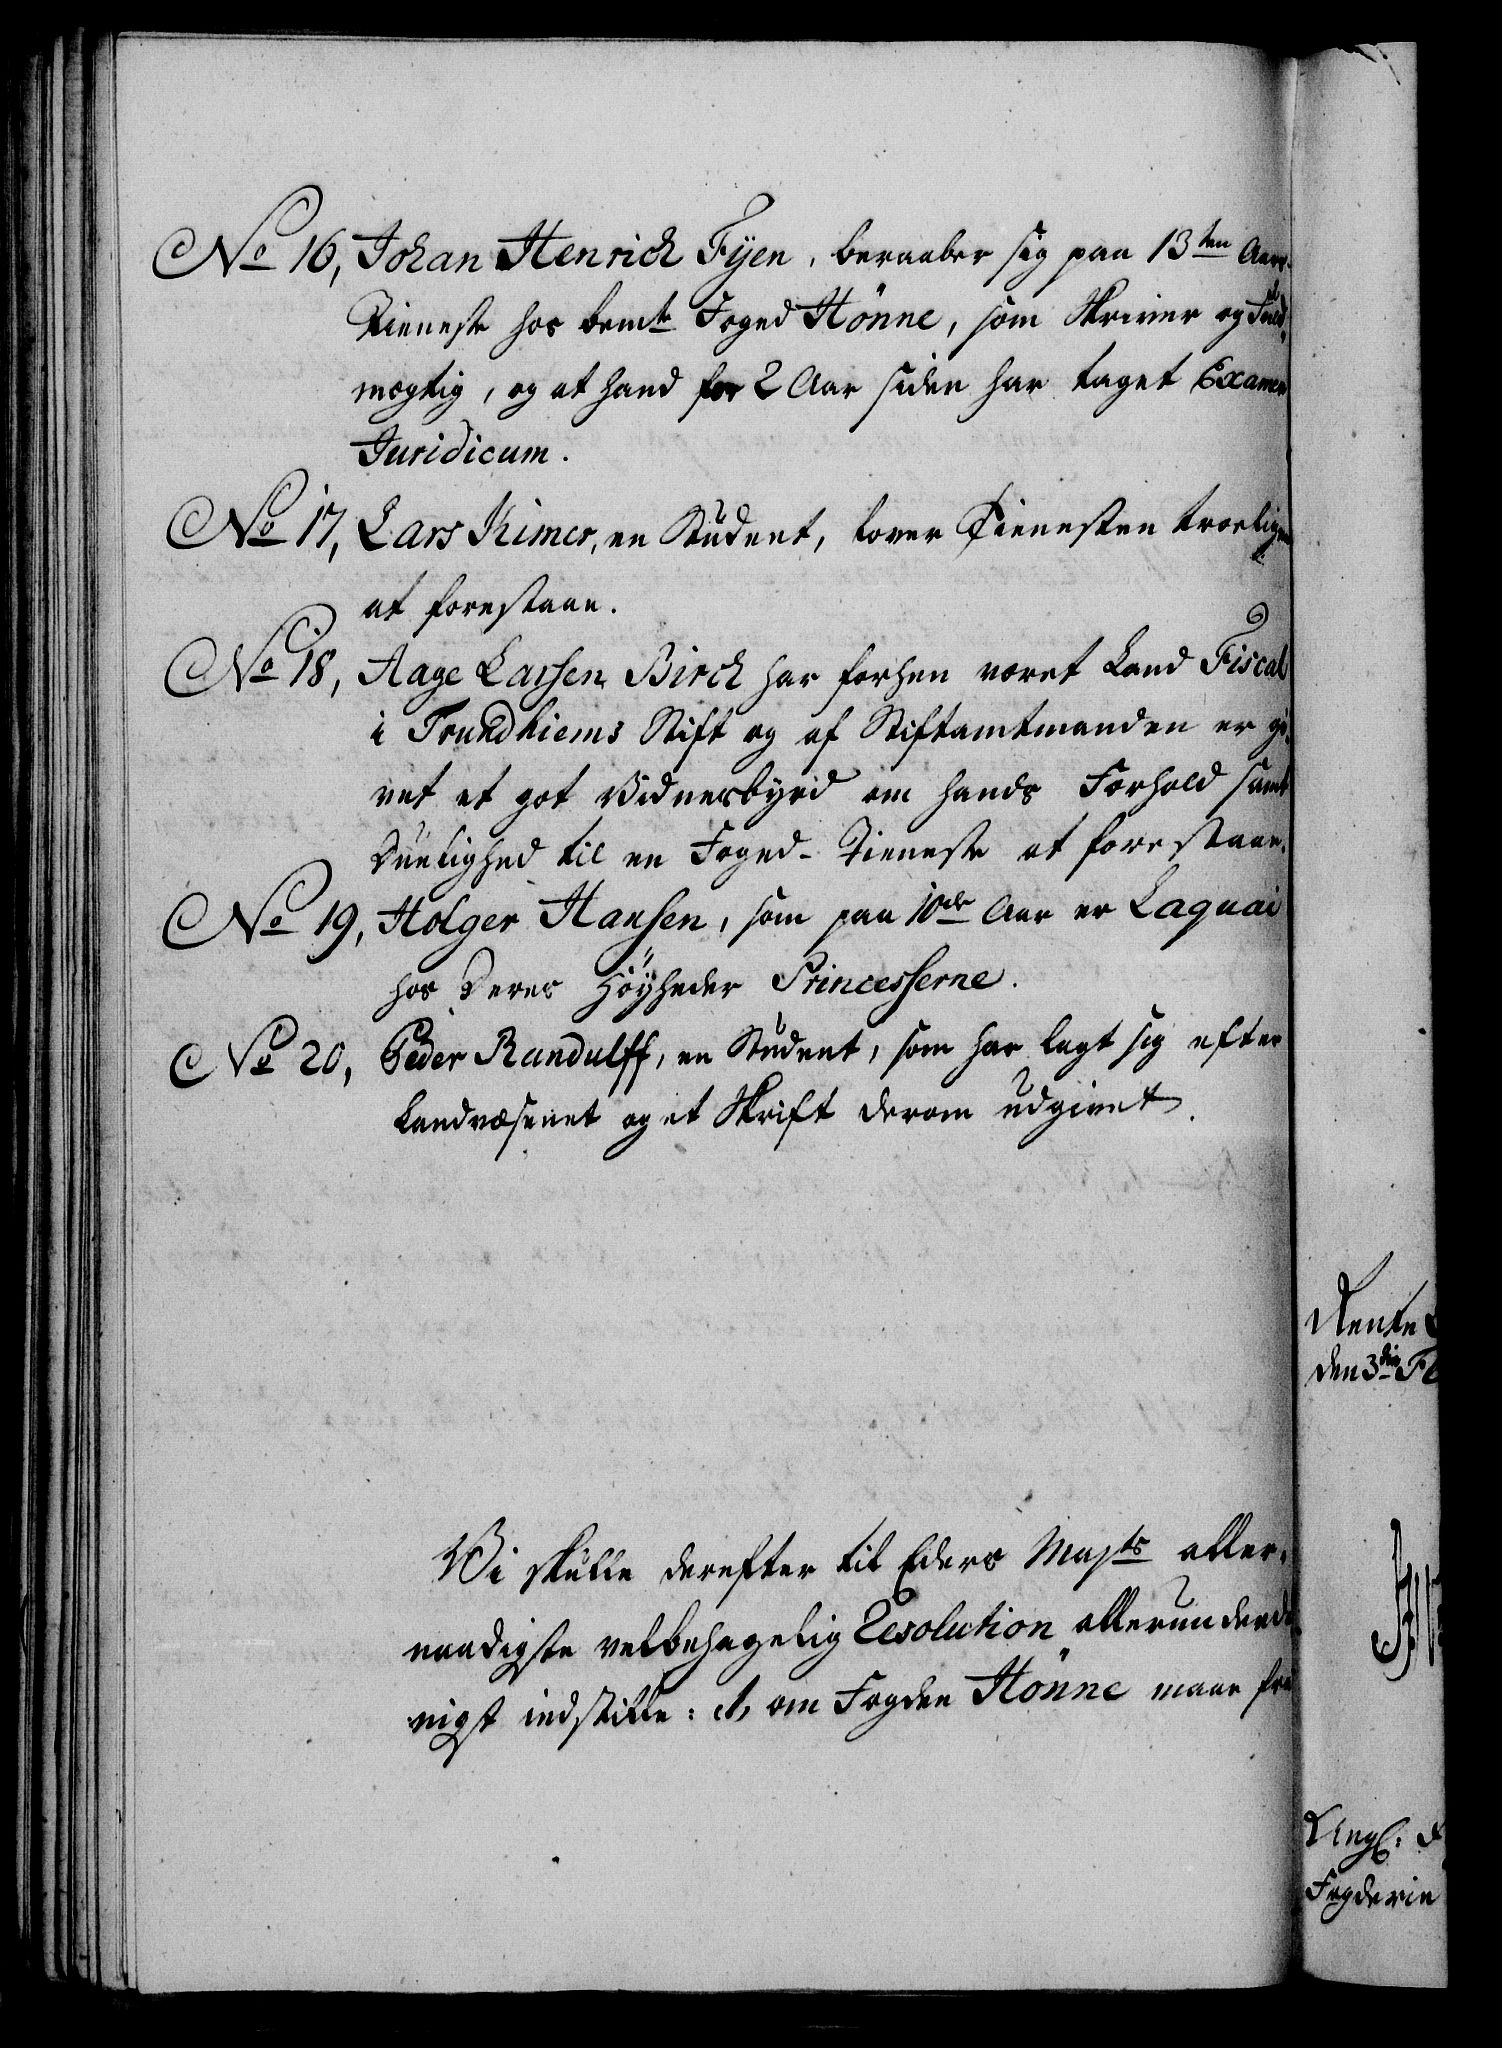 No 16, Johan Henrich Fyen, beraaber sig paa 13ten Aars
Tieneste hos bemte Foged Hönne, som Skriver og Fuld-
mægtig, og at hand for 2 Aar siden har taget Examen
Juridicum.
No 17, Lars Rimer, en Student, lover Tienesten troeligen
at forestaae.
No 18, Aage Larsen Birch har forhen været Land Fiscal
i Trundhiems Stift og af Stiftamtmanden er gi-
vet et got Vidnesbyrd om hands Forhold samt
Duelighed til en Foged-Tieneste at forestaae.
No 19, Holger Hansen, som paa 10de Aar er Laquai
hos Deres Höyheder Princesserne.
No 20, Peder Randulff, en Student, som har lagt sig efter
Landvæsenet og et Skrift derom udgivet.
Vi skulle derefter til Eders Mayts aller-
naadigste velbehagelig Resolution allerunderda-
nigst indstille: 1, om Fogden Hönne maae fra
Rente
den 3die
Fogderie